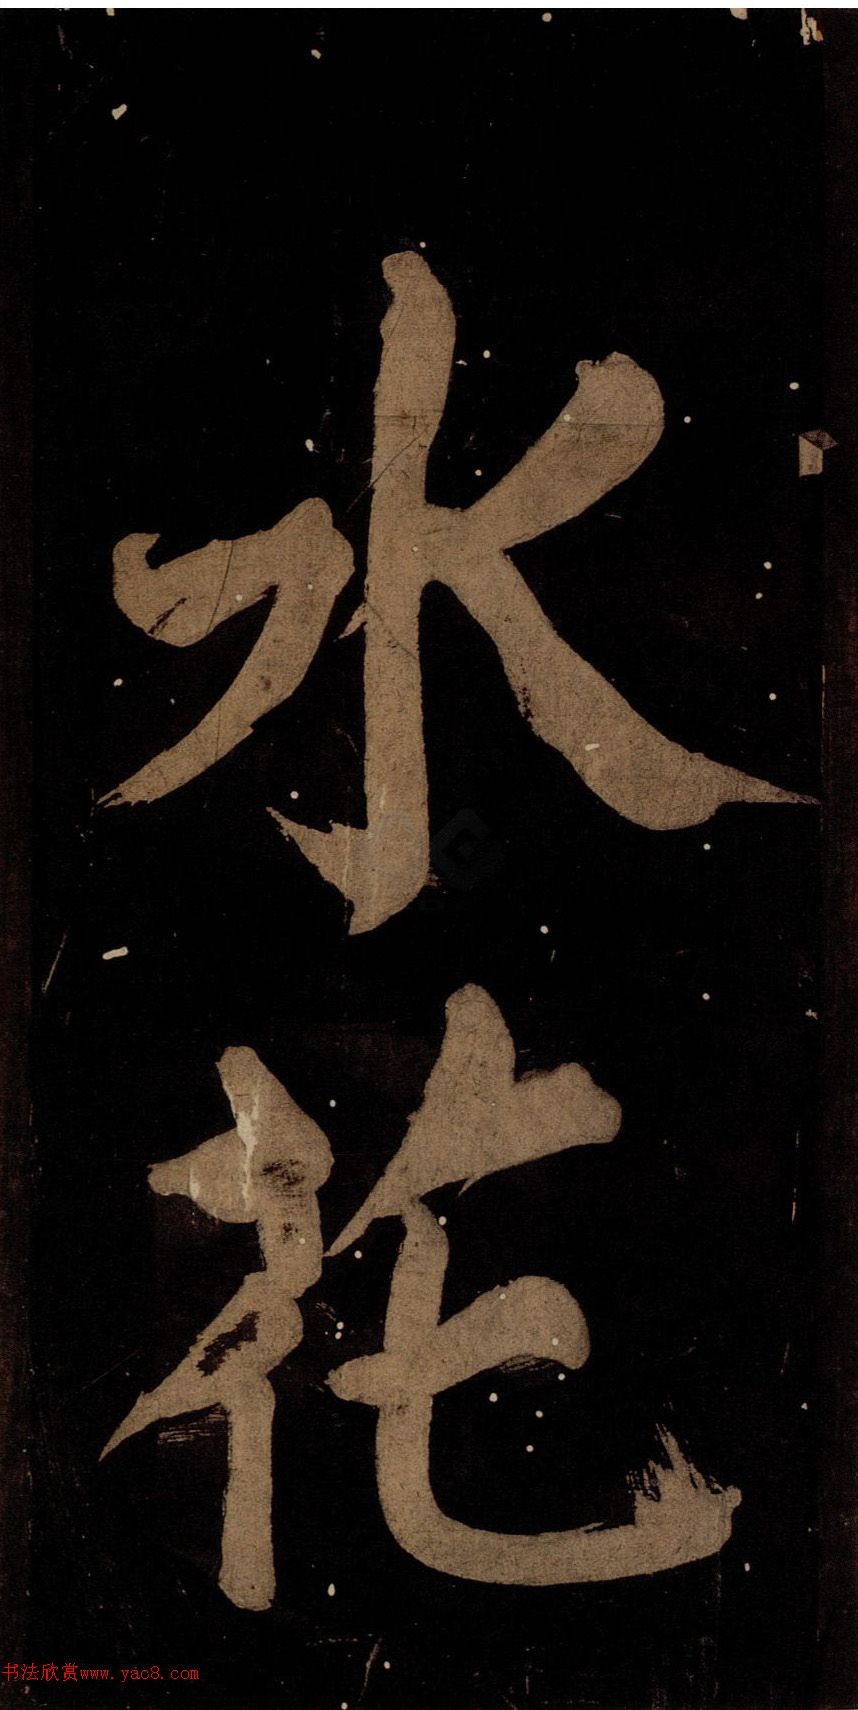 水
花
书法欣赏www.yac8.com